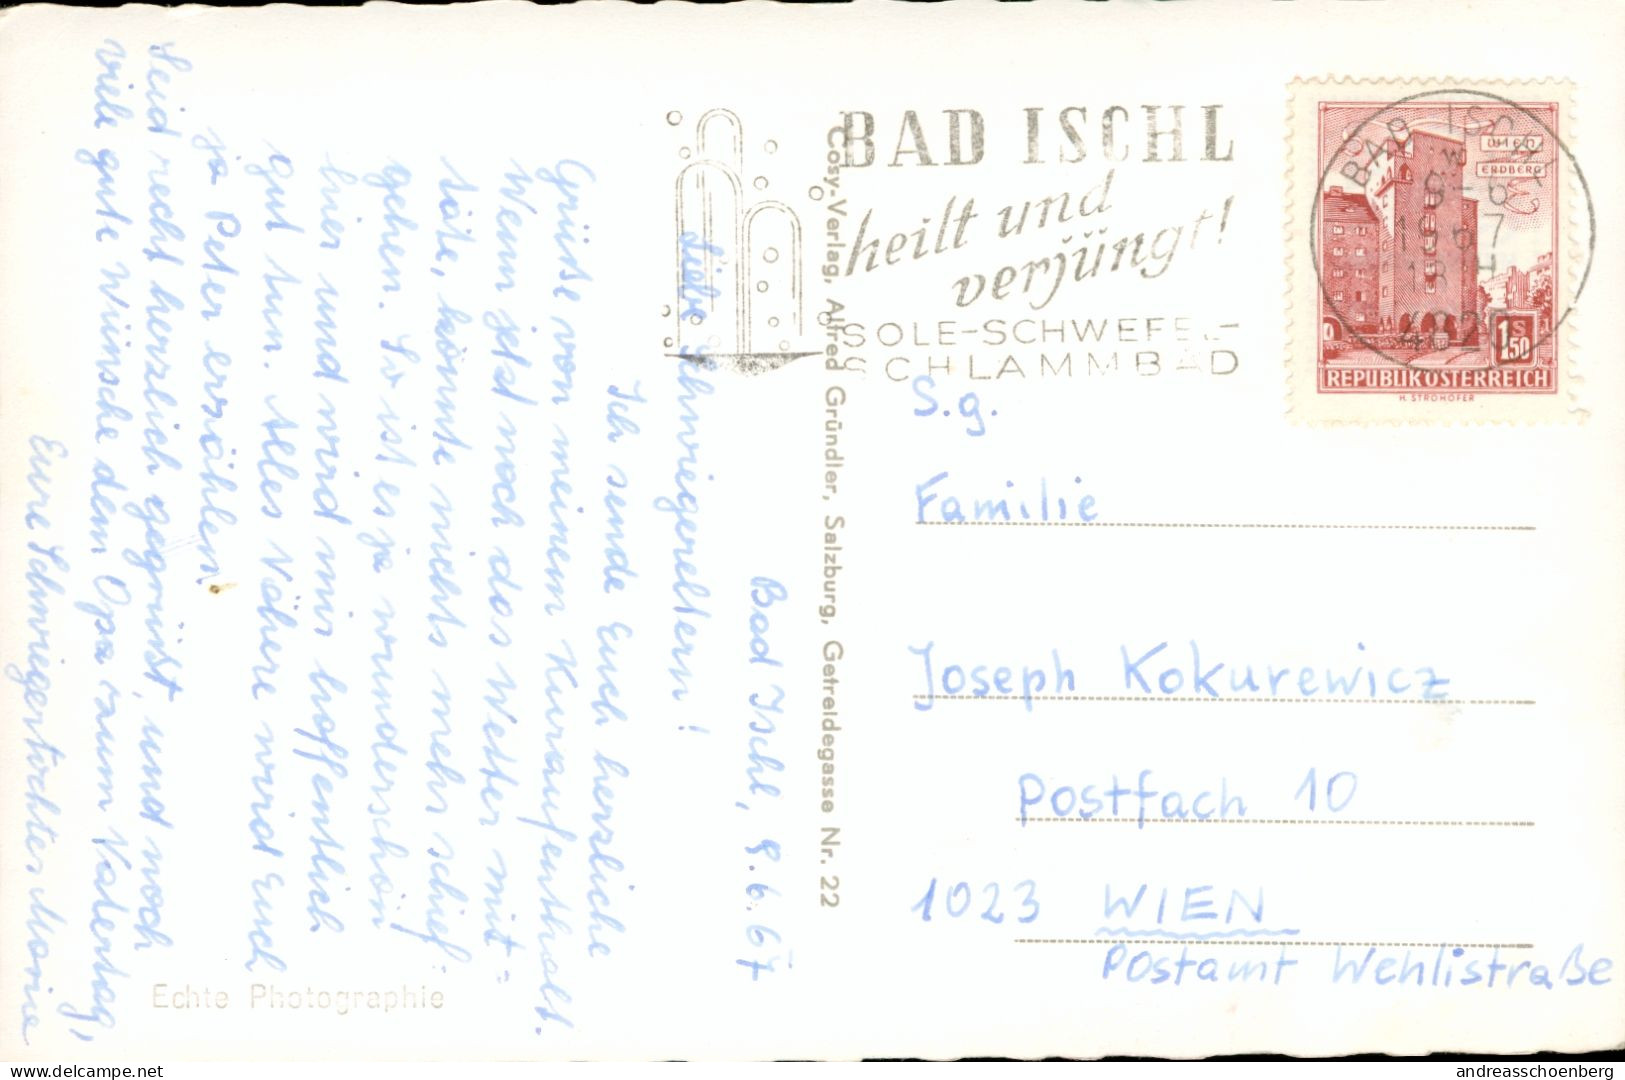 Bad Ischl, 9.6.67
Liebe Schwiegereltern!
Ich sende Euch herzliche
Grüße von meinem Kuraufenthalt.
Wenn jetzt noch das Wetter mit=
täte, könnte nichts mehr schief
gehen. So ist es ja wunderschön
hier und wird mir hoffentlich
gut tun. Alles Nähere wird Euch
ja Peter erzählen.
Seid recht herzlich gegrüßt, und noch
viele gute Wünsche dem Opa zum Vatertag,
Eure Schwiegertochter Maria
Echte Photographie
Cosy-Verlag, Alfred Gründler, Salzburg, Getreidegasse Nr. 22
BAD ISCHL
heilt und
verjüngt!
SOLE-SCHWEFEL-
SCHLAMMBAD
BAD ISCHL
9-6
1967
18 H
4820
WIEN
ERDBERG
1S50
REPUBLIK ÖSTERREICH
H. STROHOFER
S.g.
Familie
Joseph Kokurewicz
Postfach 10
1023 WIEN
Postamt Wehlistraße
delcampe.net
andreasschoenberg